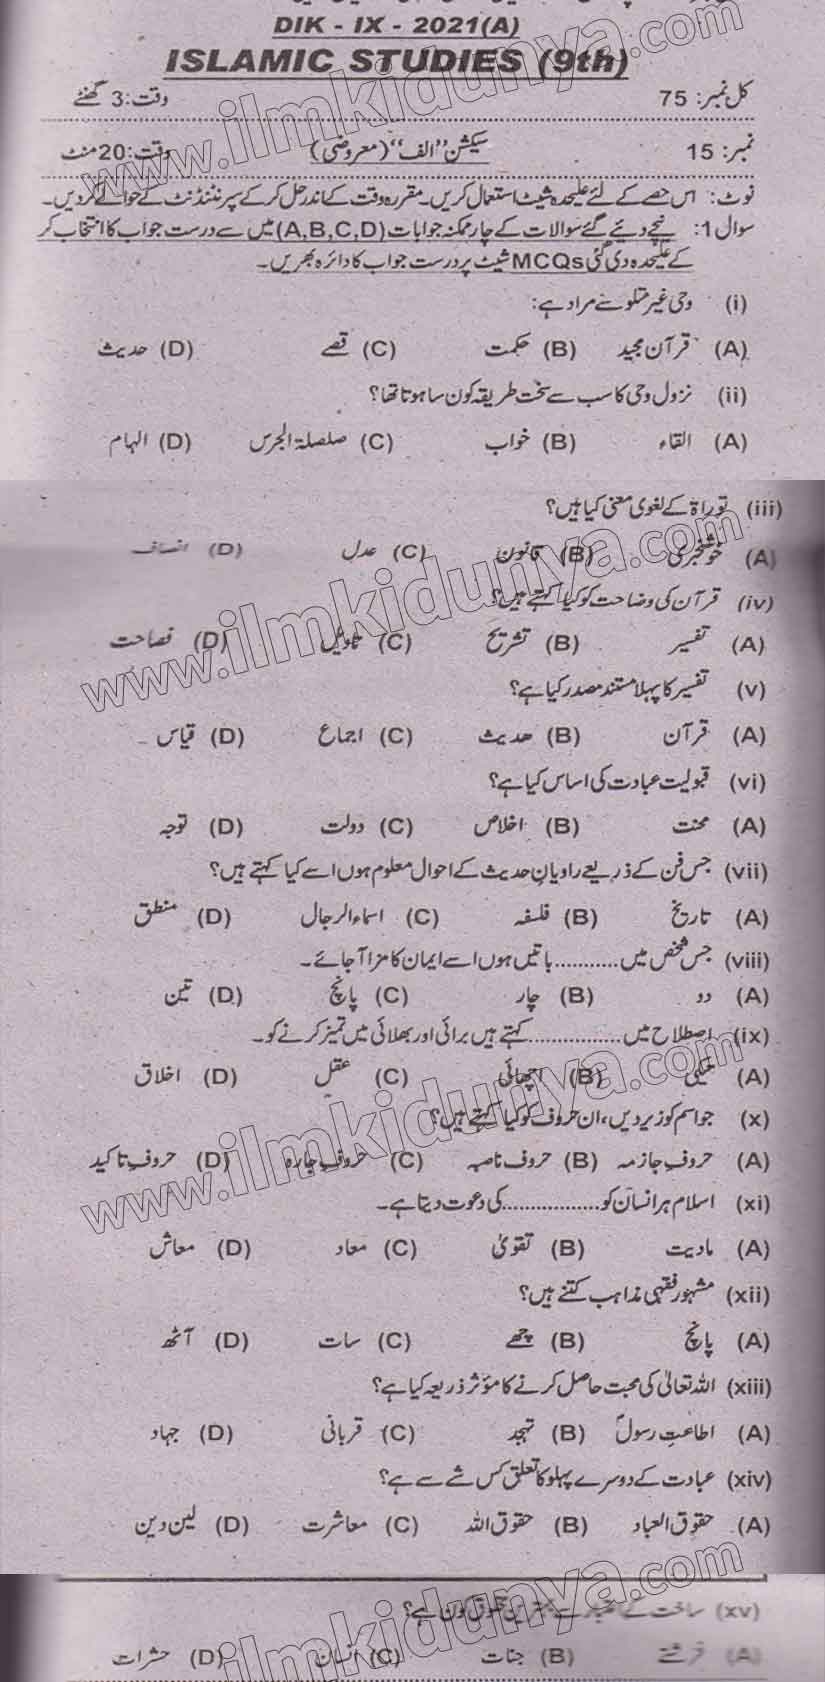 DIK - IX - 2021(A)
ISLAMIC STUDIES (9th)
کل نمبر: 75 وقت: 3 گھنٹے
نمبر: 15 سیکشن "الف" (معروضی) وقت: 20 منٹ
نوٹ: اس حصے کے لئے علیحدہ شیٹ استعمال کریں۔ مقررہ وقت کے اندر حل کر کے سپرنٹنڈنٹ کے حوالے کر دیں۔
سوال 1: نیچے دیئے گئے سوالات کے چار ممکنہ جوابات (A,B,C,D) میں سے درست جواب کا انتخاب کر
کے علیحدہ دی گئی MCQs شیٹ پر درست جواب کا دائرہ بھریں۔
(i) وحی غیر متلو سے مراد ہے:
(A) قرآن مجید (B) حکمت (C) قصے (D) حدیث
(ii) نزول وحی کا سب سے سخت طریقہ کون سا ہوتا تھا؟
(A) القاء (B) خواب (C) صلصلۃ الجرس (D) الہام
(iii) توراۃ کے لغوی معنی کیا ہیں؟
(A) خوشخبری (B) قانون (C) عدل (D) انصاف
(iv) قرآن کی وضاحت کو کیا کہتے ہیں؟
(A) تفسیر (B) تشریح (C) تاویل (D) فصاحت
(v) تفسیر کا پہلا مستند مصدر کیا ہے؟
(A) قرآن (B) حدیث (C) اجماع (D) قیاس
(vi) قبولیت عبادت کی اساس کیا ہے؟
(A) محنت (B) اخلاص (C) دولت (D) توجہ
(vii) جس فن کے ذریعے راویانِ حدیث کے احوال معلوم ہوں اسے کیا کہتے ہیں؟
(A) تاریخ (B) فلسفہ (C) اسماء الرجال (D) منطق
(viii) جس شخص میں ........... باتیں ہوں اسے ایمان کا مزا آ جائے۔
(A) دو (B) چار (C) پانچ (D) تین
(ix) اصطلاح میں ................ کہتے ہیں برائی اور بھلائی میں تمیز کرنے کو۔
(A) نیکی (B) اچھائی (C) عقل (D) اخلاق
(x) جو اسم کو زیر دیں، ان حروف کو کیا کہتے ہیں؟
(A) حروفِ جازمہ (B) حروف ناصبہ (C) حروفِ جارہ (D) حروفِ تاکید
(xi) اسلام ہر انسان کو ................. کی دعوت دیتا ہے۔
(A) مادیت (B) تقویٰ (C) معاد (D) معاش
(xii) مشہور فقہی مذاہب کتنے ہیں؟
(A) پانچ (B) چھے (C) سات (D) آٹھ
(xiii) اللہ تعالیٰ کی محبت حاصل کرنے کا مؤثر ذریعہ کیا ہے؟
(A) اطاعتِ رسولؐ (B) تہجد (C) قربانی (D) جہاد
(xiv) عبادت کے دوسرے پہلو کا تعلق کس شے سے ہے؟
(A) حقوق العباد (B) حقوق اللہ (C) معاشرت (D) لین دین
(xv) ساخت کے اعتبار سے بہترین مخلوق کون ہے؟
(A) فرشتے (B) جنات (C) انسان (D) حشرات
www.ilmkidunya.com
www.ilmkidunya.com
www.ilmkidunya.com
www.ilmkidunya.com